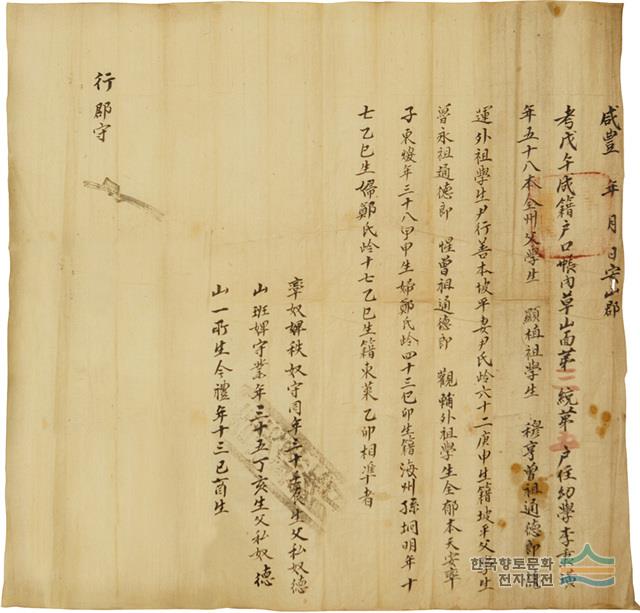 咸豊 年 月 日安山郡
考戊午成籍戶口帳內草山面第二統第五戶住幼學李
年五十八本全州父學生 顯植祖學生 穆亨曾祖通德郞
運外祖學生尹行善本坡平妻尹氏齡六十二庚申生籍坡平父學生
曾永祖通德郞 惺曾祖通德郞 觀輔外祖學生全郁本天安率
子東燮年三十八甲申生婦鄭氏齡四十三己卯生籍海州孫垌明年十
七乙巳生婦鄭氏齡十七乙巳生籍東萊乙卯相準者
率奴婢秩奴守同年三十壬辰生父私奴德
山班婢守業年三十五丁亥生父私奴德
山一所生今禮年十三己酉生
行郡守
한국향토문화
전자대전